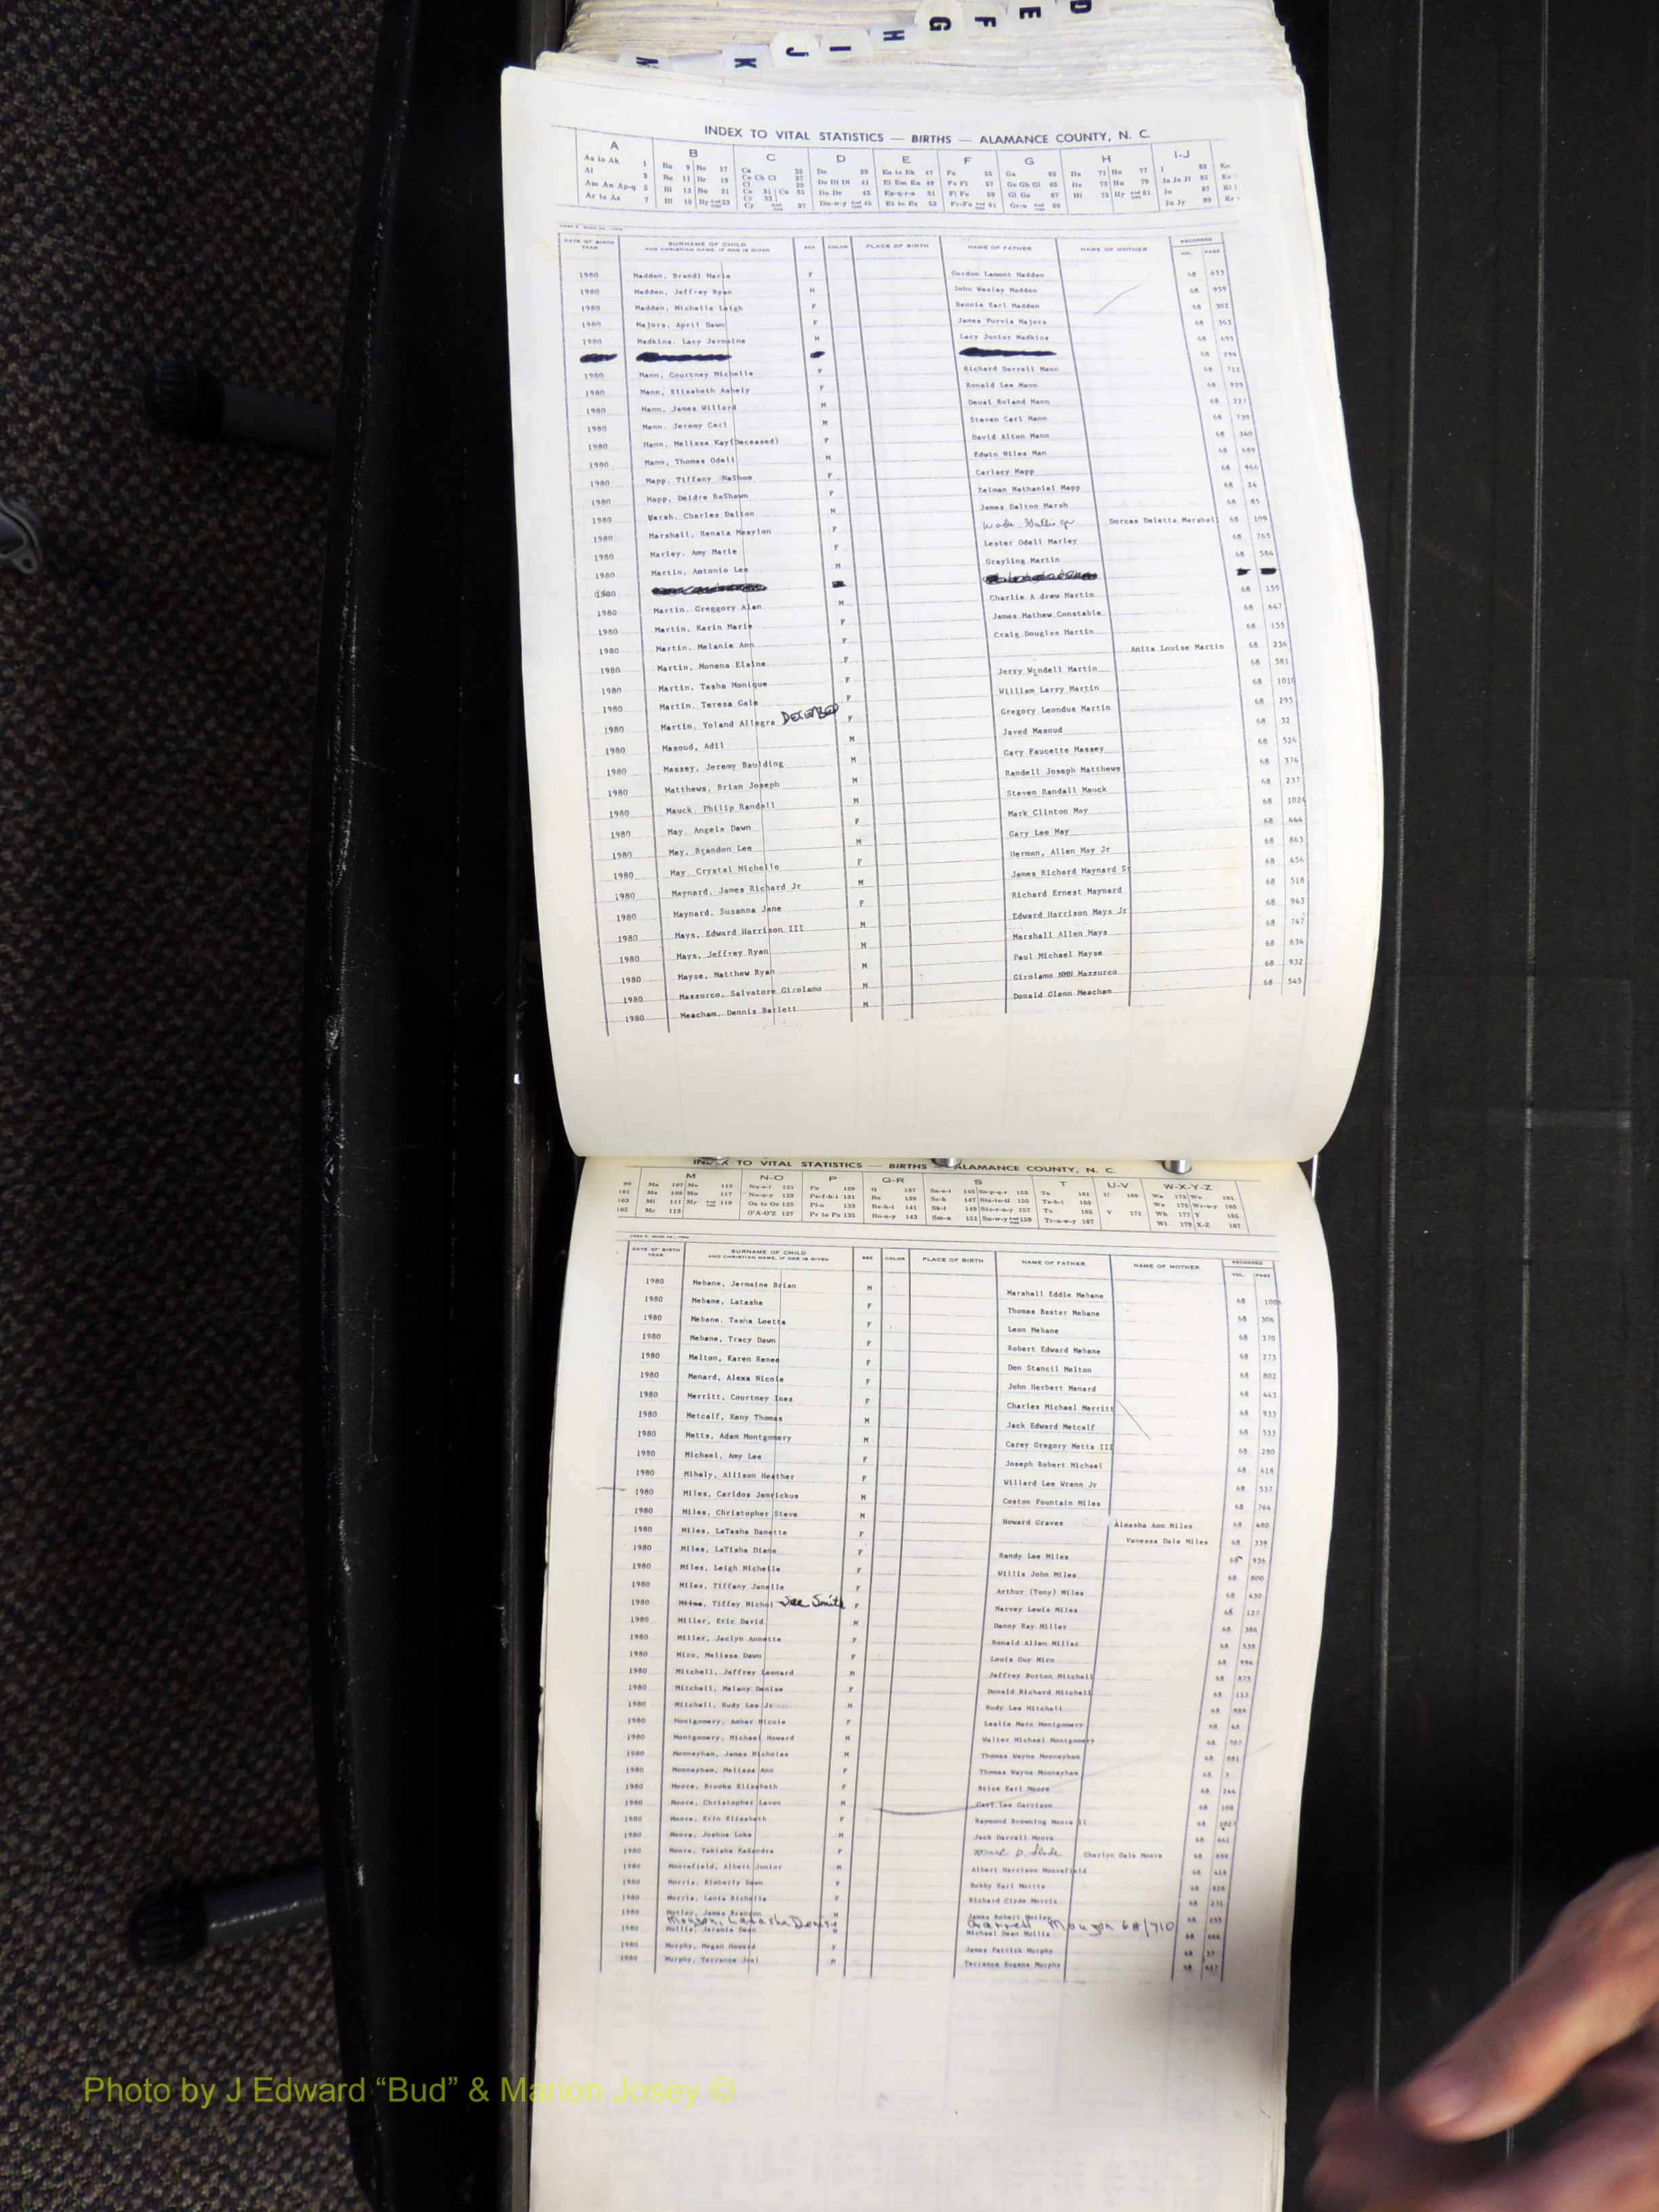 D
E
F
G
H
I
J
K
INDEX TO VITAL STATISTICS — BIRTHS — ALAMANCE COUNTY, N. C.
A B C D E F G H I-J
DATE OF BIRTH YEAR SURNAME OF CHILD AND CHRISTIAN NAME, IF ONE IS GIVEN SEX COLOR PLACE OF BIRTH NAME OF FATHER NAME OF MOTHER RECORDED VOL. PAGE
1980 Madden, Brandi Marie F Gordon Lamont Madden 68 653
1980 Madden, Jeffrey Ryan M John Wesley Madden 68 959
1980 Madden, Michelle Leigh F Dennis Earl Madden 68 302
1980 Majors, April Dawn F James Purvis Majors 68 363
1980 Madkins, Lacy Jermaine M Lacy Junior Madkins 68 695
68 294
1980 Mann, Courtney Michelle F Richard Derrell Mann 68 713
1980 Mann, Elizabeth Ashely F Ronald Lee Mann 68 929
1980 Mann, James Willard M Doual Roland Mann 68 227
1980 Mann, Jeremy Carl M Steven Carl Mann 68 739
1980 Mann, Melissa Kay(Deceased) F David Alton Mann 68 340
1980 Mann, Thomas Odell M Edwin Niles Man 68 689
1980 Mapp, Tiffany NaShom F Carlacy Mapp 68 966
1980 Mapp, Deidre RaShawn F Zelman Nathaniel Mapp 68 24
1980 Marsh, Charles Dalton M James Dalton Marsh 68 85
1980 Marshall, Renata Meaylon F Wade Dorcas Deletta Marshal 68 109
1980 Marley, Amy Marie F Lester Odell Marley 68 765
1980 Martin, Antonio Lee M Grayling Martin 68 584
1980
1980 Martin, Greggory Alan M Charlie A drew Martin 68 159
1980 Martin, Karin Marie F James Mathew Constable 68 647
1980 Martin, Melanie Ann F Craig Douglas Martin 68 155
1980 Martin, Monena Elaine F Anita Louise Martin 68 236
1980 Martin, Tasha Monique F Jerry Windell Martin 68 581
1980 Martin, Teresa Gale F William Larry Martin 68 1010
1980 Martin, Yoland Allegra DECEASED F Gregory Leondus Martin 68 295
1980 Masoud, Adil M Javed Masoud 68 32
1980 Massey, Jeremy Baulding M Gary Faucette Massey 68 526
1980 Matthews, Brian Joseph M Randell Joseph Matthews 68 376
1980 Mauck, Philip Randall M Steven Randall Mauck 68 237
1980 May, Angela Dawn F Mark Clinton May 68 1024
1980 May, Brandon Lee M Gary Lee May 68 444
1980 May Crystal Michelle F Herman, Allen May Jr 68 863
1980 Maynard, James Richard Jr M James Richard Maynard Sr 68 456
1980 Maynard, Susanna Jane F Richard Ernest Maynard 68 518
1980 Mays, Edward Harrison III M Edward Harrison Mays Jr 68 943
1980 Mays, Jeffrey Ryan M Marshall Allen Mays 68 747
1980 Mayse, Matthew Ryan M Paul Michael Mayse 68 634
1980 Mazzurco, Salvatore Girolamo M Girolamo NMN Mazzurco 68 932
1980 Meacham, Dennis Barlett M Donald Glenn Meacham 68 545
INDEX TO VITAL STATISTICS — BIRTHS — ALAMANCE COUNTY, N. C.
M N-O P Q-R S T U-V W-X-Y-Z
DATE OF BIRTH YEAR SURNAME OF CHILD AND CHRISTIAN NAME, IF ONE IS GIVEN SEX COLOR PLACE OF BIRTH NAME OF FATHER NAME OF MOTHER RECORDED VOL. PAGE
1980 Mebane, Jermaine Brian M Marshall Eddie Mebane 68 100
1980 Mebane, Latasha F Thomas Baxter Mebane 68 306
1980 Mebane, Tasha Loetta F Leon Mebane 68 370
1980 Mebane, Tracy Dawn F Robert Edward Mebane 68 273
1980 Melton, Karen Renee F Don Stancil Melton 68 802
1980 Menard, Alexa Nicole F John Herbert Menard 68 443
1980 Merritt, Courtney Inez F Charles Michael Merritt 68 933
1980 Metcalf, Keny Thomas M Jack Edward Metcalf 68 533
1980 Metts, Adam Montgomery M Carey Gregory Metts III 68 280
1980 Michael, Amy Lee F Joseph Robert Michael 68 618
1980 Mihaly, Allison Heather F Willard Lee Wrenn Jr 68 537
1980 Miles, Carldos Jamrickus M Coston Fountain Miles 68 764
1980 Miles, Christopher Steve M Howard Graves Aleasha Ann Miles 68 480
1980 Miles, LaTasha Danette F Vanessa Dale Miles 68 339
1980 Miles, LaTisha Diane F Randy Lee Miles 68 936
1980 Miles, Leigh Nichelle F Willis John Miles 68 800
1980 Miles, Tiffany Janelle F Arthur (Tony) Miles 68 430
1980 Miles, Tiffey Nichol See Smith F Harvey Lewis Miles 68 127
1980 Miller, Eric David M Danny Ray Miller 68 386
1980 Miller, Jaclyn Annette F Ronald Allen Miller 68 338
1980 Miro, Melissa Dawn F Louis Guy Miro 68 994
1980 Mitchell, Jeffrey Leonard M Jeffrey Burton Mitchell 68 873
1980 Mitchell, Melany Denise F Donald Richard Mitchell 68 113
1980 Mitchell, Rudy Lee Jr M Rudy Lee Mitchell 68 889
1980 Montgomery, Amber Nicole F Leslie Marc Montgomery 68 48
1980 Montgomery, Michael Howard M Walter Michael Montgomery 68 707
1980 Mooneyham, James Nicholas M Thomas Wayne Mooneyham 68 881
1980 Mooneyham, Melissa Ann F Thomas Wayne Mooneyham 68 3
1980 Moore, Brooke Elizabeth F Brice Earl Moore 68 244
1980 Moore, Christopher Lavon M Carl Lee Garrison 68 108
1980 Moore, Erin Elizabeth F Raymond Browning Moore II 68 1027
1980 Moore, Joshua Luke M Jack Darrell Moore 68 661
1980 Moore, Takisha KaSandra F Mark D. Slade Charlyn Gale Moore 68 898
1980 Moorefield, Albert Junior M Albert Harrison Moorefield 68 419
1980 Morris, Kimberly Dawn F Bobby Earl Morris 68 828
1980 Morris, Lania Richelle F Richard Clyde Morris 68 271
1980 Motley, James Brandon M James Robert Motley 68 255
Mouzon, Latasha Denise Garrell Mouzon 68/710
1980 Mullis, Jeramie Dean M Michael Dean Mullis 68 666
1980 Murphy, Megan Howard F James Pattick Murphy 68 37
1980 Murphy, Terrance Joel M Terrance Eugene Murphy 68 417
Photo by J Edward “Bud” & Marion Josey ©